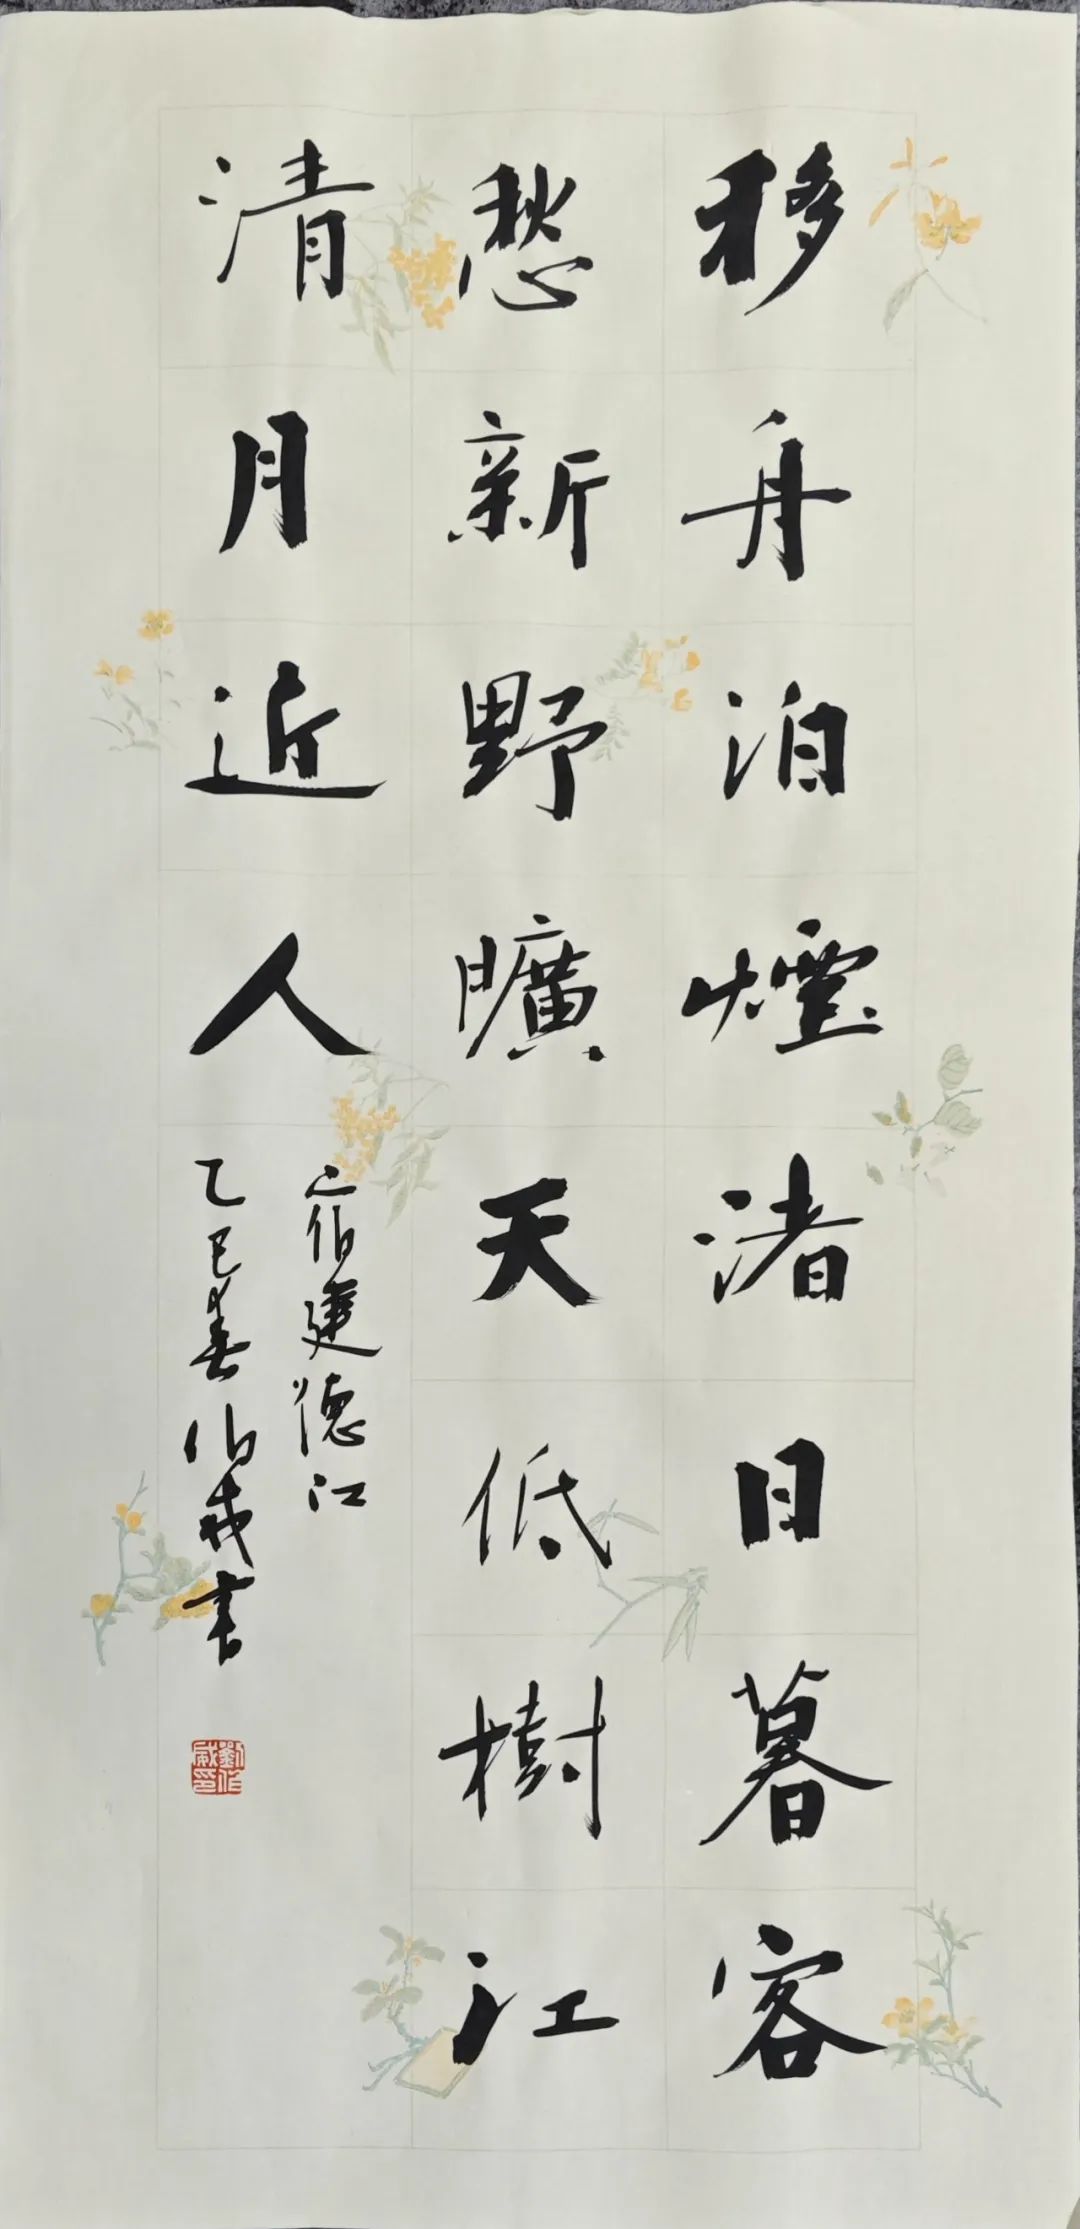 移舟泊煙渚日暮客
愁新野曠天低樹江
清月近人
宿建德江
乙巳春作威書
劉作威印